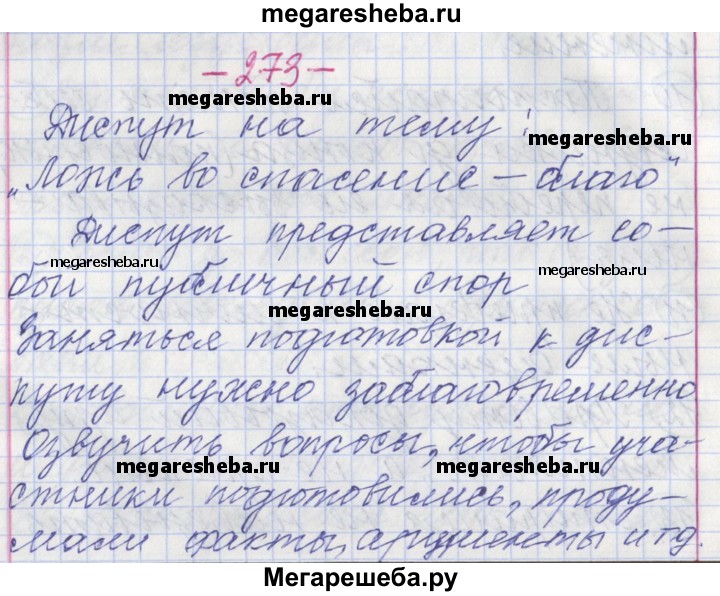 megaresheba.ru
- 273 -
megaresheba.ru
Диспут на тему:
„Ложь во спасение – благо"
Диспут представляет со-
megaresheba.ru
megaresheba.ru
бой публичный спор
Заняться подготовкой к дис-
путу нужно заблаговременно
Озвучить вопросы, чтобы уча-
megaresheba.ru
megaresheba.ru
стники подготовились, проду-
мали факты, аргументы и т.д.
Мегарешеба.ру